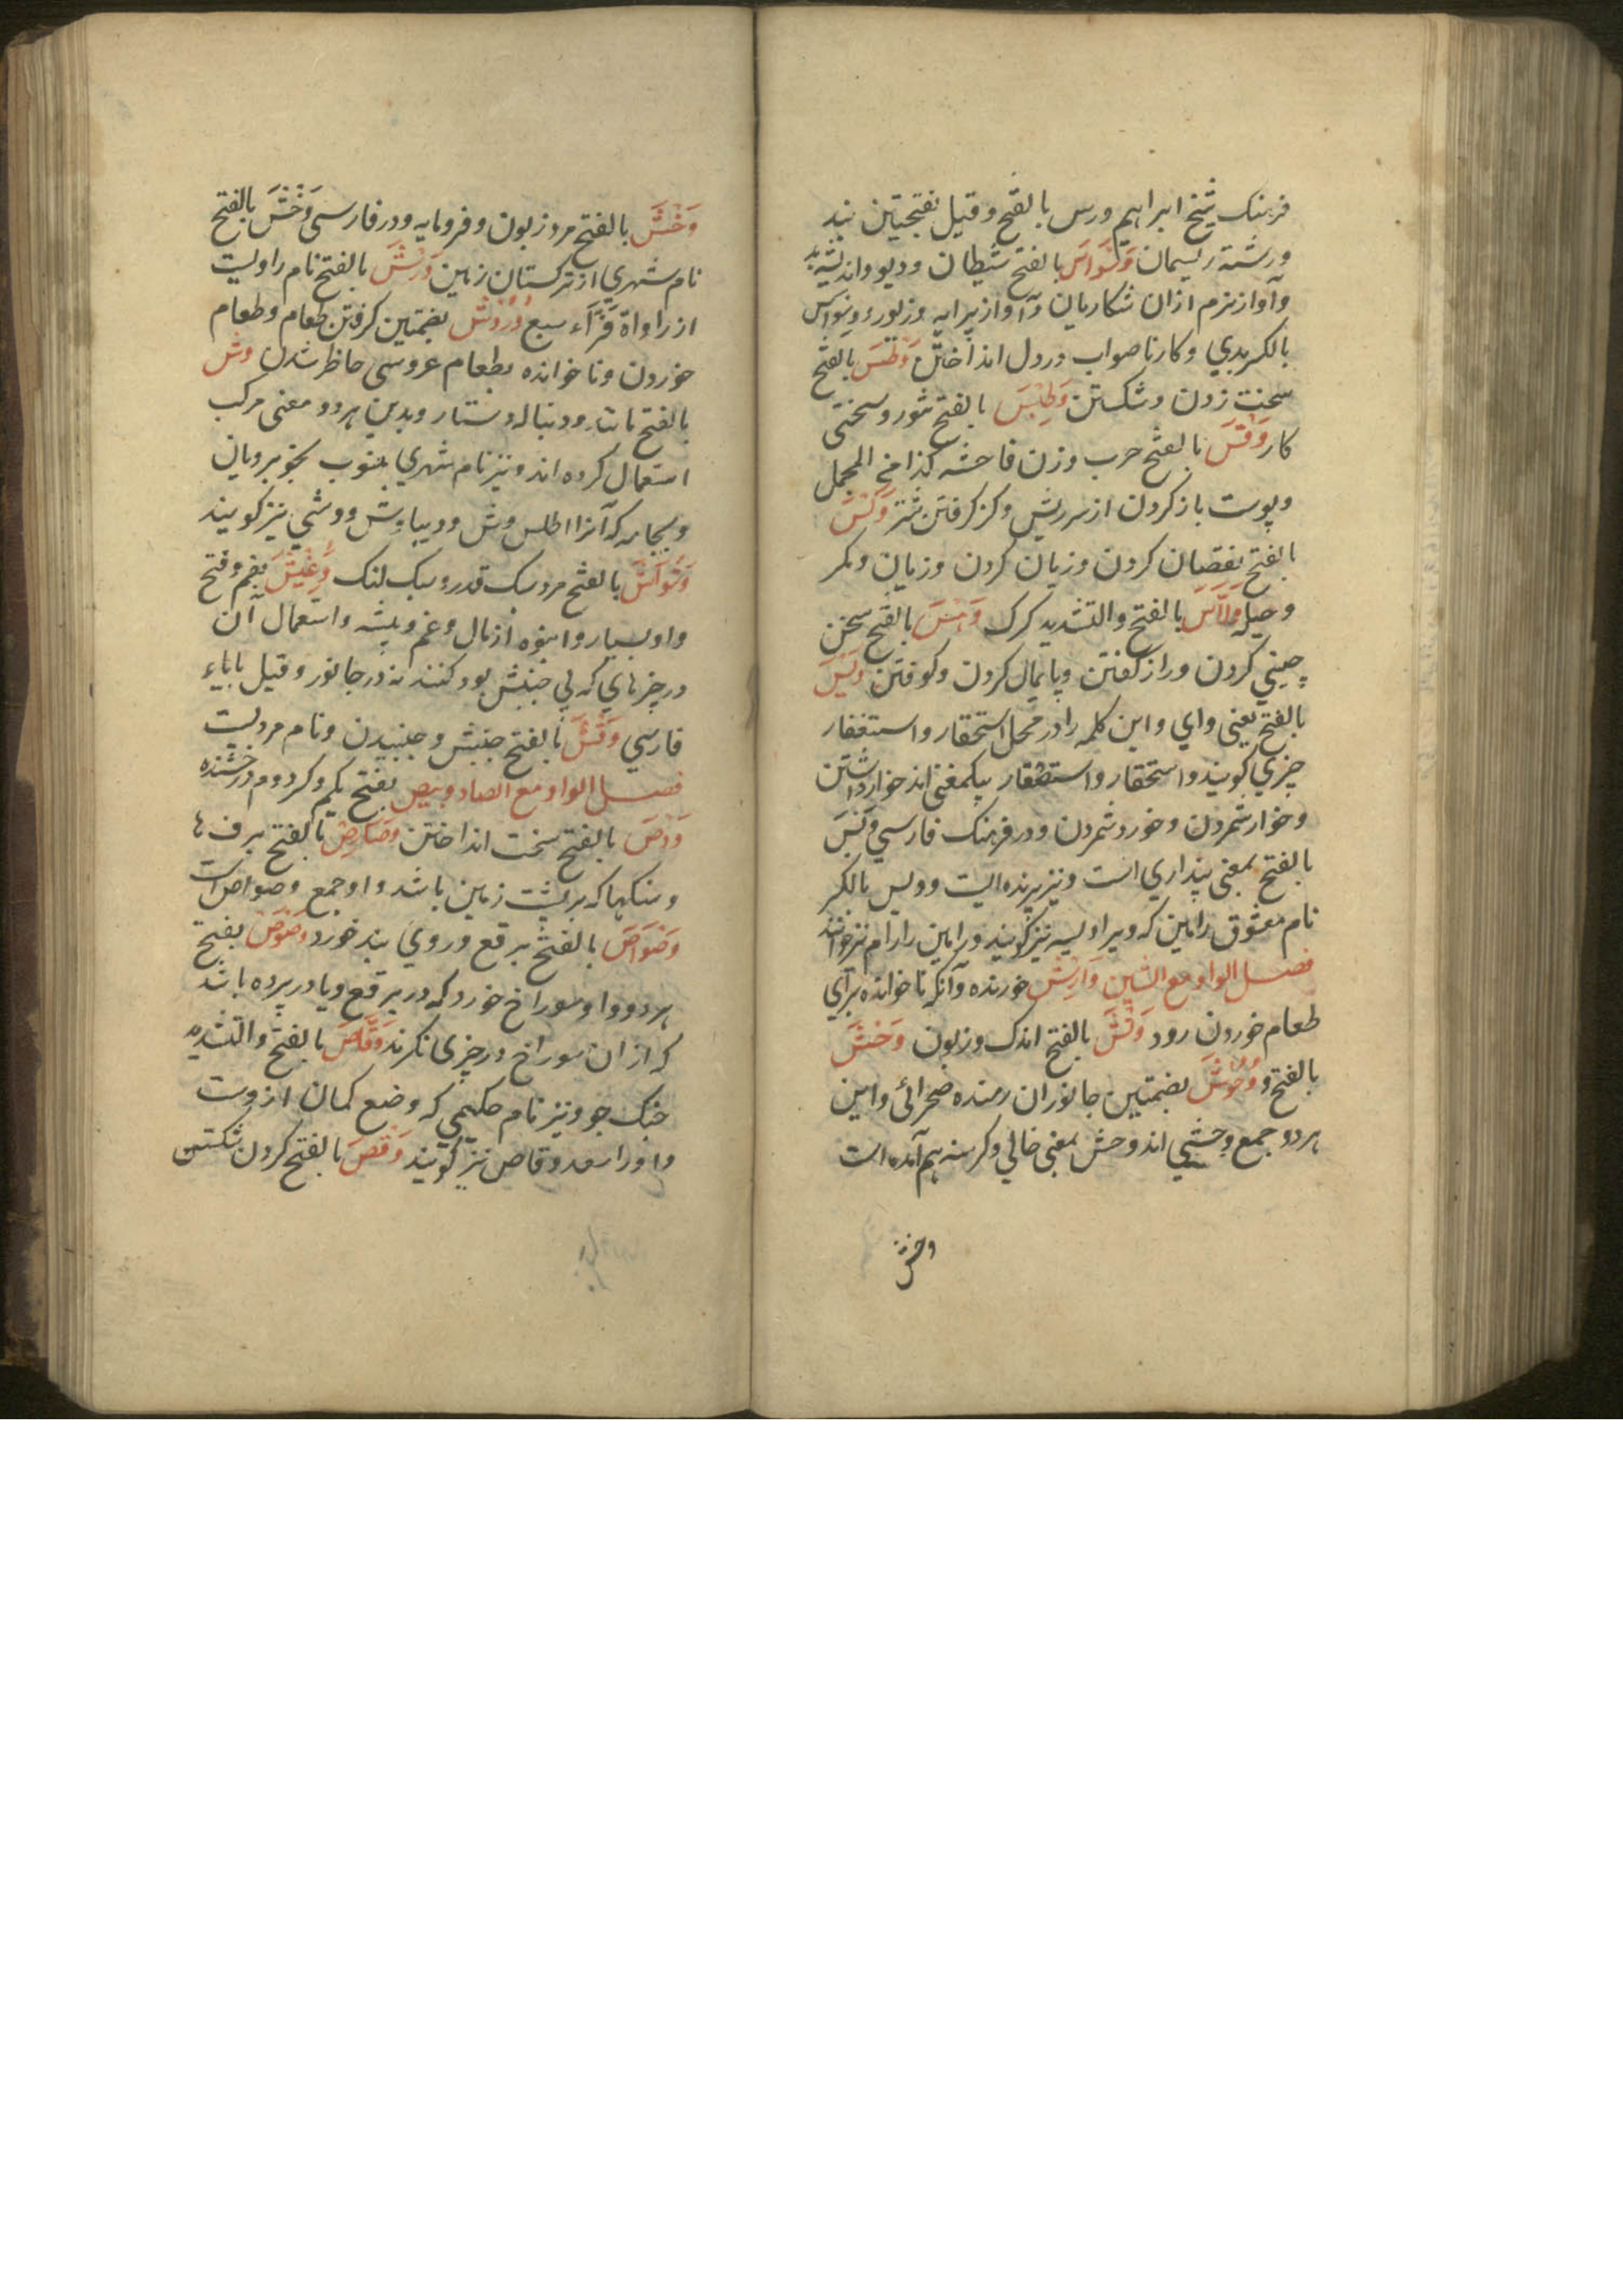 فرهنک شیخ ابراهیم ورس بالفتح وقیل بفتحتین بند
ورشته ریسمان وَسْوَاسَ بالفتح شیطان ودیو واندیشه بد
وآواز نرم ازان شکاریان وآواز پیرایه وزیور ووسواس
بالکر بدی وکار ناصواب در دل انداختن وَطْسَ بالفتح
سخت زدن وشکستن وَطِیْسَ بالفتح تنور وسختی
کار وَقْسَ بالفتح جرب وزن فاحشه کذا فی المجمل
وپوست باز کردن از سر ریش وکز کرفتن شتر وَکْسَ
بالفتح نقصان کردن وزیان کردن وزیان ومکر
وحیله وَلَّاسَ بالفتح والتشدید کرک وَهْسَ بالفتح سخن
چینی کردن وراز گفتن وپایمال کردن وکوفتن وَیْسَ
بالفتح یعنی وای واین کلمه را در محل استحقار واستغفار
چیزی کویند واستحقار واستصغار بیکمعنی اند خوار داشتن
وخوار شمردن وخورد شمردن ودر فرهنک فارسی وَیْسَ
بالفتح بمعنی پنداری است ونیز پرنده ایست وویس بالکر
نام معشوق رامین که ویرا ویسه نیز کویند ورامین را رام نیز خوانند
فصل الواو مع الشین وَارِشْ خورنده وآنکه ناخوانده برای
طعام خوردن رود وَتْشَ بالفتح اندک وزبون وَحْشَ
بالفتح و وُحُوْشَ بضمتین جانوران رمنده صحرائی واین
هردو جمع وحشی اند وحش بمعنی خالی وکرسنه هم آمده است
وخش
وَخْشَ بالفتح مرد زبون وفرومایه ودر فارسی وَخْشَ بالفتح
نام شهری از ترکستان زمین وَرْشَ بالفتح نام راویست
از راواة قرّاء سبع وُرُوْشْ بضمتین کرفتن طعام وطعام
خوردن وناخوانده بطعام عروسی حاظر شدن وش
بالفتح مانند ودنباله دستار وبدین هردو معنی مرکب
استعمال کرده اند ونیز نام شهری منسوب بخوبرویان
وبجامه که آنرا اطلس وش ودیبا وش ووشی نیز کویند
وَشْوَاشْ بالفتح مرد سبک قدر وسبک لنک وَغِیْشَ بضم وفتح
واو بسیار وانبوه از مال وغم وبیشه واستعمال آن
در چیزهای که بی جنبش بود کنند نه در جانور وقیل بابای
فارسی وَقْشَ بالفتح جنبش وجنبیدن ونام مردیست
فصل الواو مع الصاد وبیص بفتح یکم وکر دوم درخشنده
وَدْصَ بالفتح سخت انداختن وَصَارِصْ بالفتح برف ها
وسنکها که بر پشت زمین باشد واو جمع وصواص است
وَصْوَاصَ بالفتح برقع وروی بند خورد وَصْوَصْ بفتح
هردو واو سوراخ خورد که در برقع ویا در پرده باشد
که از ان سوراخ در چیزی نکرند وَقَّاصَ بالفتح والتشدید
جنک جو ونیز نام حکیمی که وضع کمان ازوست
واورا سعد وقاص نیز کویند وَقْصَ بالفتح کردن شکستن